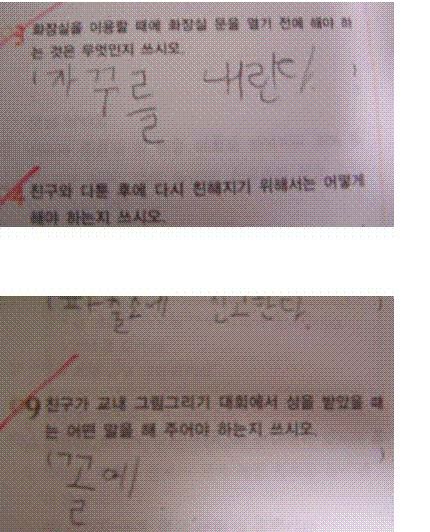 3 화장실을 이용할 때에 화장실 문을 열기 전에 해야 하
는 것은 무엇인지 쓰시오.
( 자꾸를 내린다 )
4 친구와 다툰 후에 다시 친해지기 위해서는 어떻게
해야 하는지 쓰시오.
( 파출소에 신고한다. )
9 친구가 교내 그림그리기 대회에서 상을 받았을 때
는 어떤 말을 해 주어야 하는지 쓰시오.
( 꼴에 )